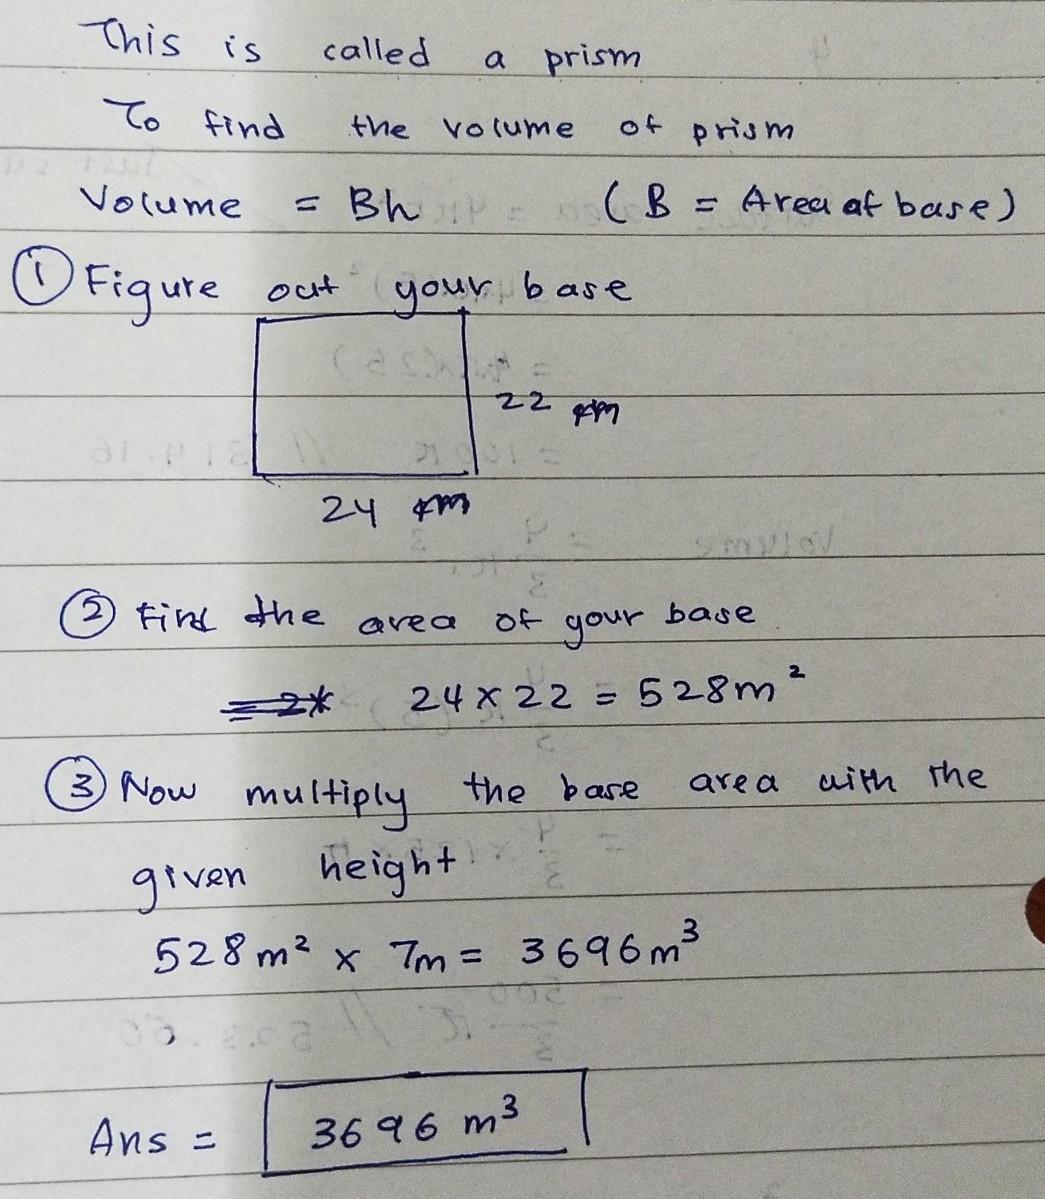 This is called a prism
To find the volume of prism
Volume = Bh (B = Area of base)
① Figure out your base
22 m
24 m
② Find the area of your base
24 × 22 = 528 m²
③ Now multiply the base area with the
given height
528 m² × 7m = 3696 m³
Ans = 3696 m³